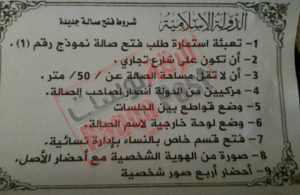 الدولة الإسلامية
شروط فتح صالة جديدة
1- تعبئة استمارة طلب فتح صالة نموذج رقم (1).
2- أن تكون على شارع تجاري.
3- أن لا تقل مساحة الصالة عن /50/ متر.
4- مزكيين من الدولة أنصار لصاحب الصالة.
5- وضع قواطع بين الجلسات
6- وضع لوحة خارجية لاسم الصالة.
7- فتح قسم خاص بالنساء بإدارة نسائية.
8- صورة من الهوية الشخصية مع أحضار الأصل.
9- أحضار أربع صور شخصية